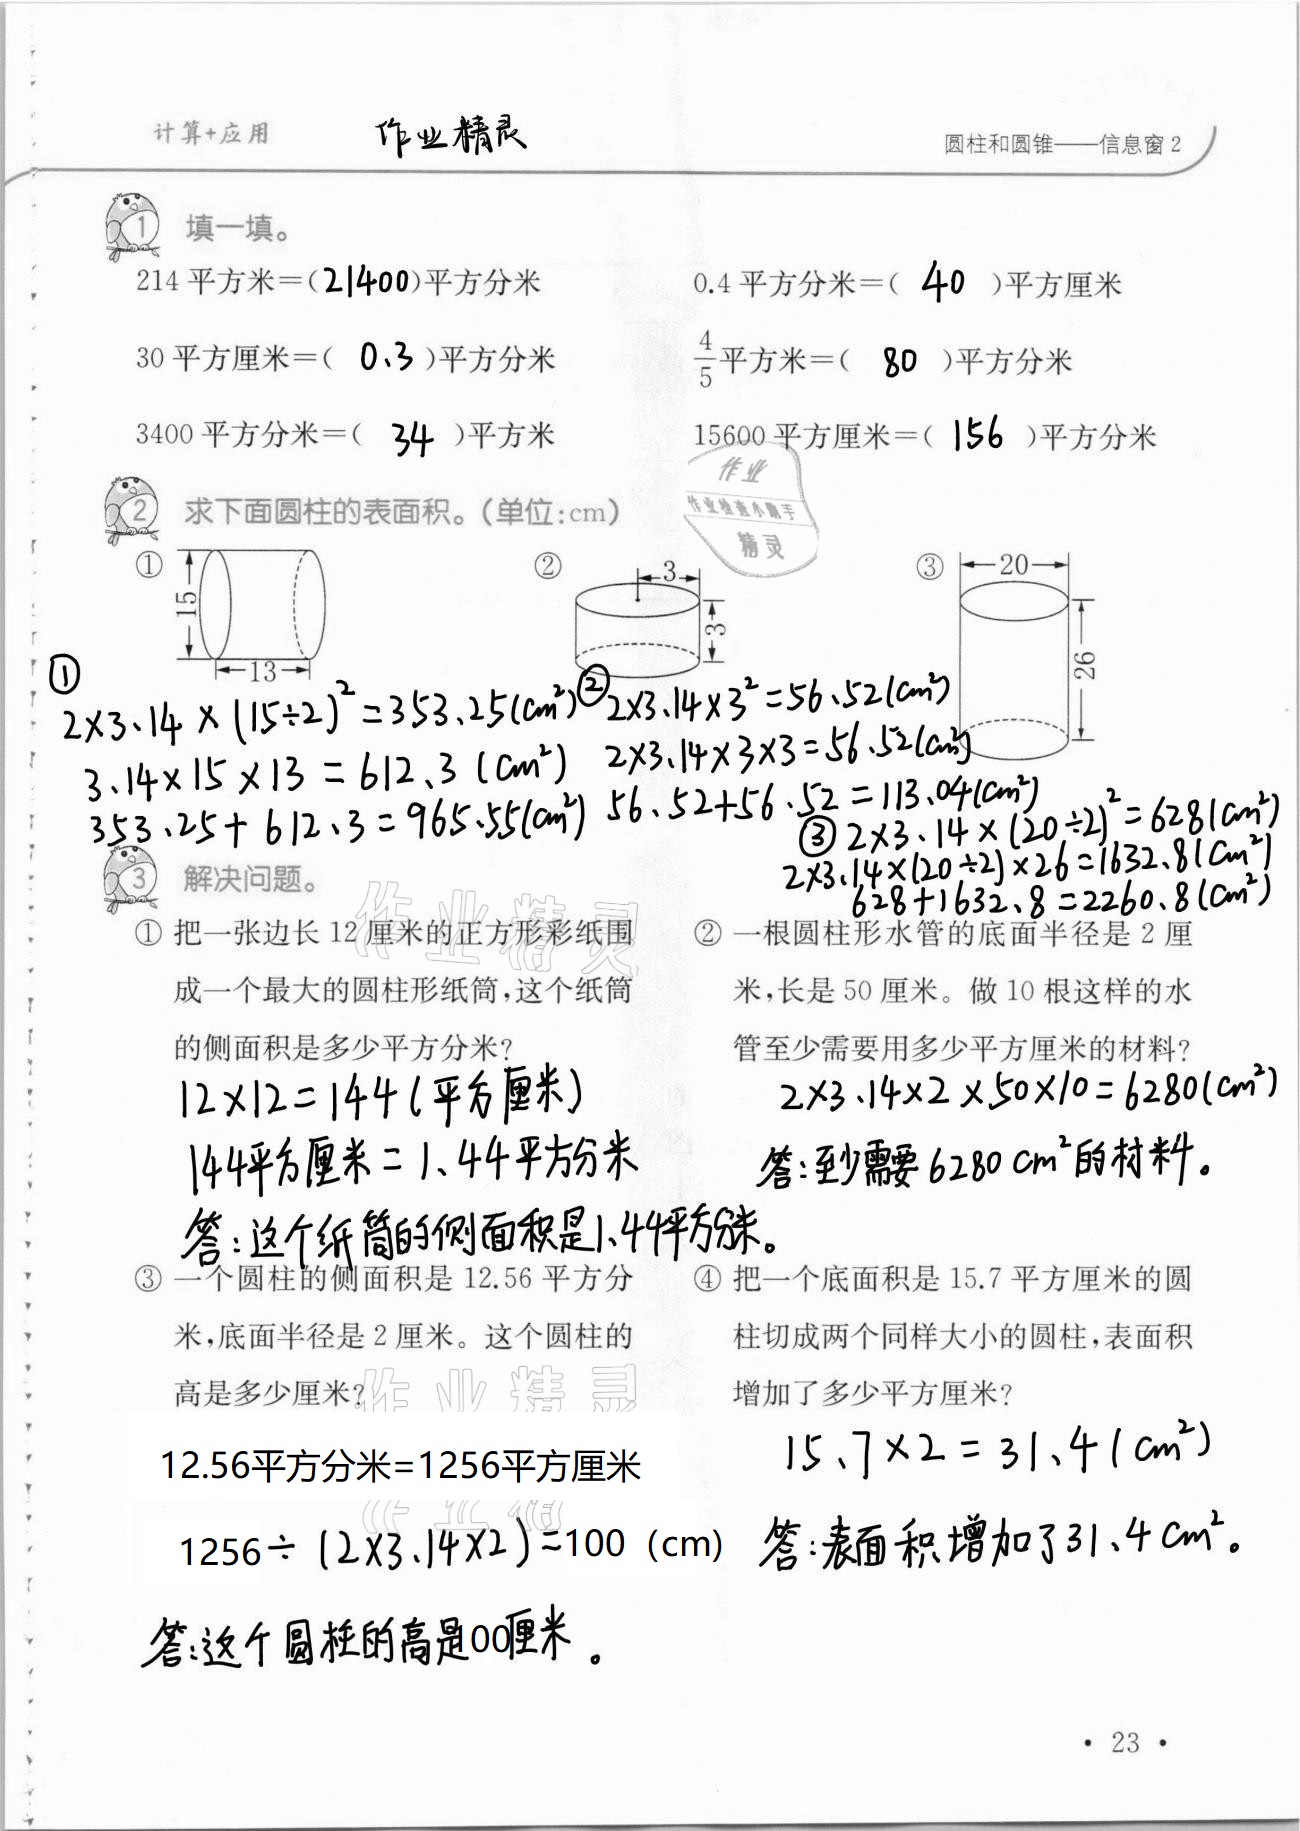 计算+应用 作业精灵 圆柱和圆锥——信息窗2
1 填一填。
214平方米=(21400)平方分米 0.4平方分米=( 40 )平方厘米
30平方厘米=( 0.3 )平方分米 4/5平方米=( 80 )平方分米
3400平方分米=( 34 )平方米 15600平方厘米=( 156 )平方分米
作业
作业检查小助手
精灵
2 求下面圆柱的表面积。(单位:cm)
① 15 13 ② 3 3 ③ 20 26
①
2×3.14×(15÷2)²=353.25(cm²)
3.14×15×13=612.3(cm²)
353.25+612.3=965.55(cm²)
②2×3.14×3²=56.52(cm²)
2×3.14×3×3=56.52(cm²)
56.52+56.52=113.04(cm²)
③2×3.14×(20÷2)²=628(cm²)
2×3.14×(20÷2)×26=1632.8(cm²)
628+1632.8=2260.8(cm²)
3 解决问题。
作业精灵
①把一张边长12厘米的正方形彩纸围
成一个最大的圆柱形纸筒,这个纸筒
的侧面积是多少平方分米?
12×12=144(平方厘米)
144平方厘米=1.44平方分米
答:这个纸筒的侧面积是1.44平方分米。
②一根圆柱形水管的底面半径是2厘
米,长是50厘米。做10根这样的水
管至少需要用多少平方厘米的材料?
2×3.14×2×50×10=6280(cm²)
答:至少需要6280cm²的材料。
③一个圆柱的侧面积是12.56平方分
米,底面半径是2厘米。这个圆柱的
高是多少厘米?
作业精灵
12.56平方分米=1256平方厘米
1256÷(2×3.14×2)=100（cm)
答:这个圆柱的高是100厘米。
④把一个底面积是15.7平方厘米的圆
柱切成两个同样大小的圆柱,表面积
增加了多少平方厘米?
15.7×2=31.4(cm²)
答:表面积增加了31.4cm²。
• 23 •